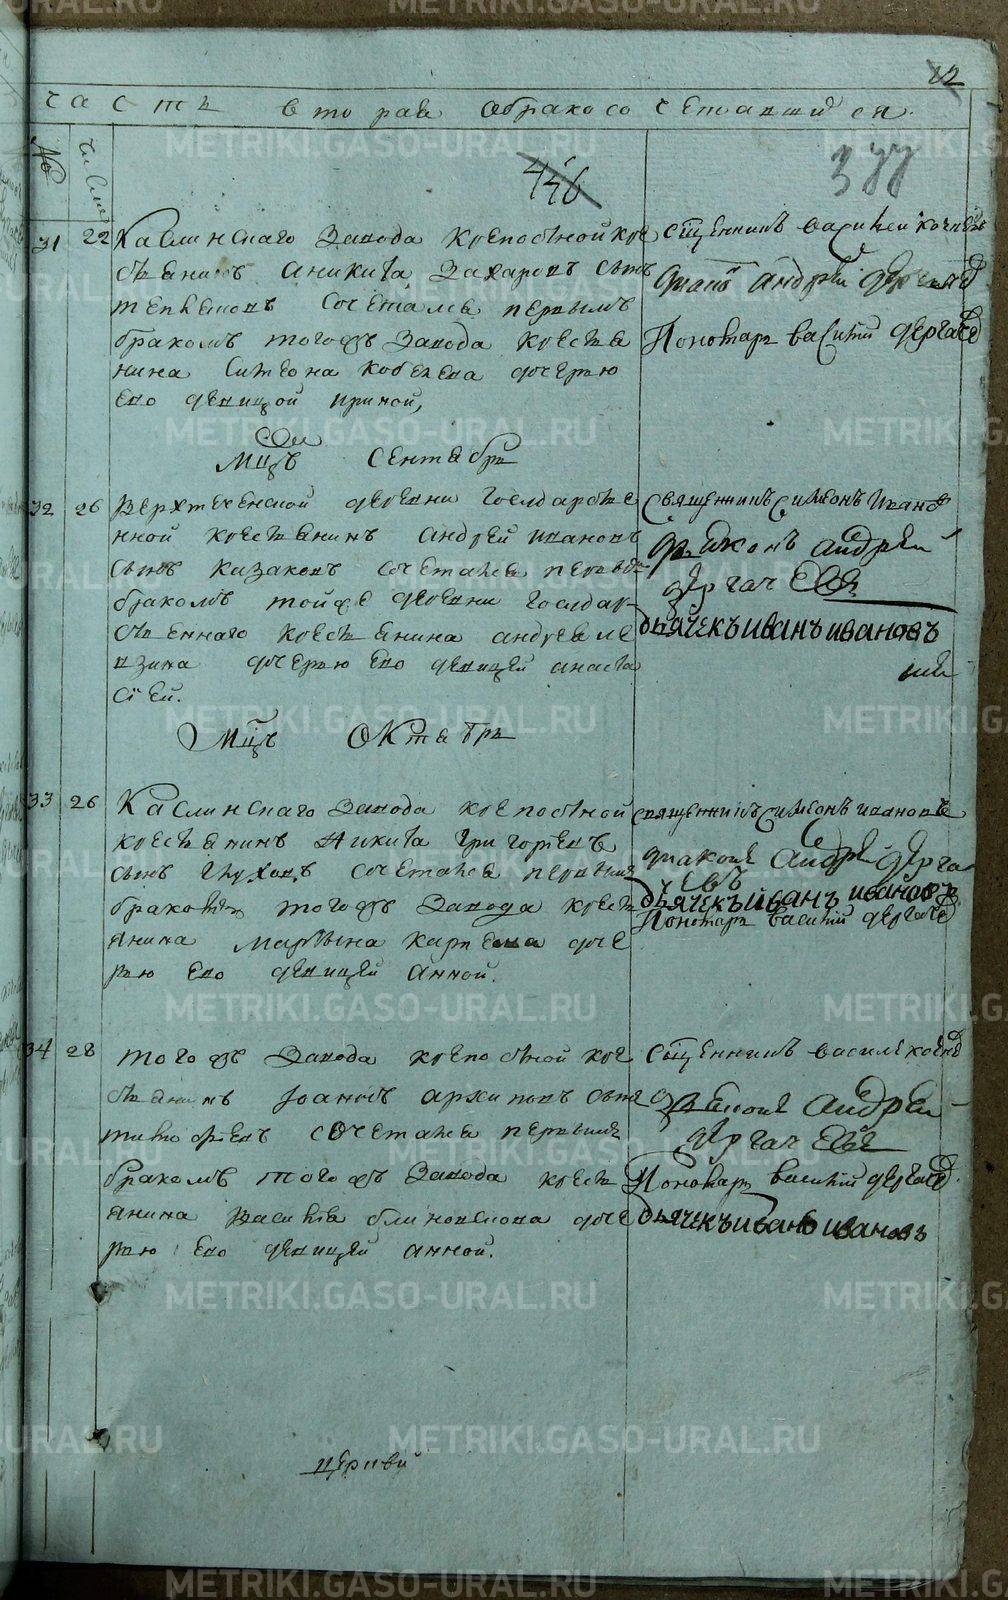 12
часть вторая обракосочетавшихся
№ число
446
377
31 22 Каслинскаго завода крепостной кре
стьянинъ Аникита Захаровъ сынъ
сочетался первымъ
бракомъ тогожъ завода крестья
нина Симеона дочерью
ево девицой Ириной,
священникъ Василей
Андрей Дергачев
Пономарь Василий Дергачев
Мцъ сентября
32 26 Верхтеченской деревни государстве
нной крестьянинъ Андрей Ивановъ
сынъ Казаковъ сочетался первымъ
бракомъ тойже деревни государ
ственнаго крестьянина Андрея
дочерью ево девицей Анаста
сией.
священникъ Симеонъ Иванов
дьяконъ Андрей
Дергачевъ
дьячекъ Иванъ Ивановъ
Мцъ Октября
33 26 Каслинскаго завода крепостной
крестьянинъ Никита Григорьевъ
сынъ Глуховъ сочетался первымъ
бракомъ тогожъ завода кресть
янина Мартына Карпева доче
рью ево девицей Анной.
священникъ Симеонъ Ивановъ
диаконъ Андрей Дерга
чевъ
дьячекъ Иванъ Ивановъ
Пономарь Василий Дергачев
34 28 тогожъ завода крепостной кре
стьянинъ Иоаннъ Архиповъ сынъ
сочетался первымъ
бракомъ тогожъ завода кресть
янина Василья Блиновскова доче
рью ево девицей Анной.
священникъ Василей
Андрей
Дергачевъ
Пономарь Василий Дергачев
дьячекъ Иванъ Ивановъ
церкви
METRIKI.GASO-URAL.RU